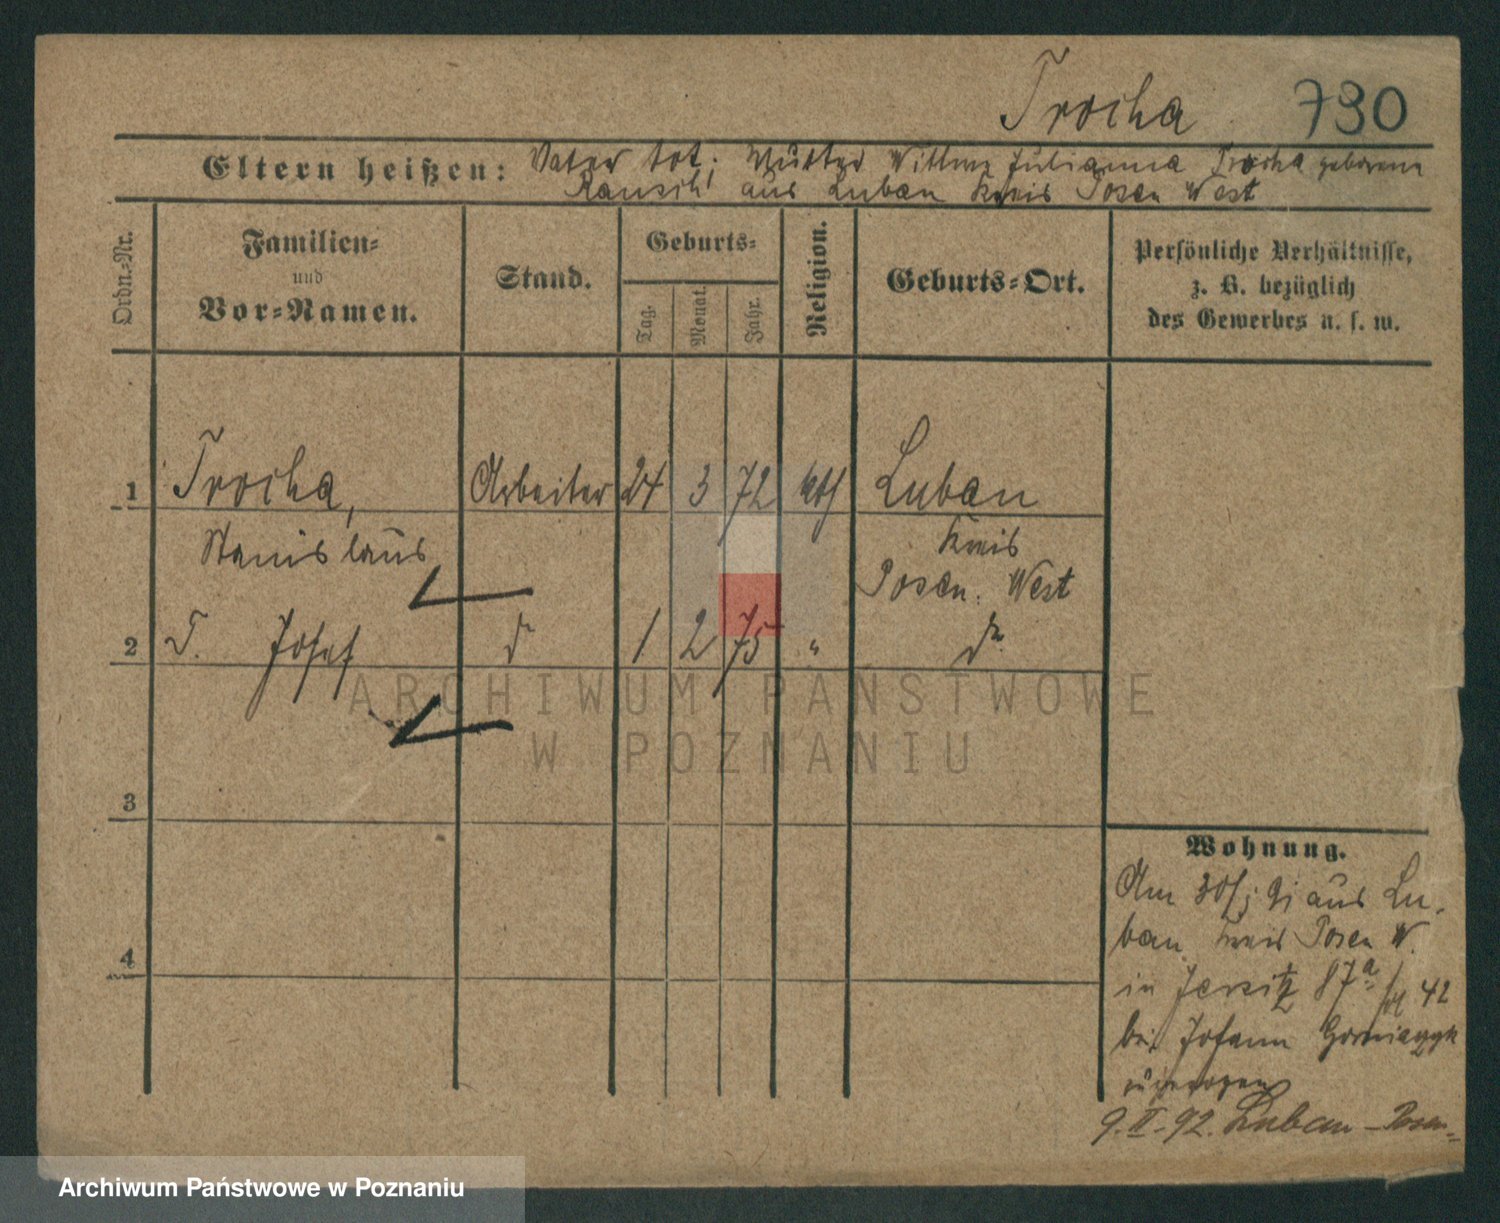 Trocha 730
Eltern heißen: Vater tot; Mutter Wittwe Julianna Trocha geborene
Rausch, aus Luban Kreis Posen West
Ordn.-Nr.
Familien-
und
Vor-Namen.
Stand.
Geburts-
Tag.
Monat.
Jahr.
Religion.
Geburts-Ort.
Persönliche Verhältnisse,
z. B. bezüglich
des Gewerbes u. s. w.
1 Trocha, Arbeiter 24 3 72 kth Luban
Stanislaus Kreis
Posen. West
2 T. Josef d 1 2 75 " d
3
4
Wohnung.
Am 30/ 91 aus Lu-
ban Kreis Posen W.
in Jersitz 87a 42
bei Johann Gorniaczyk
zugezogen
9.II.92. Luban - Posen
ARCHIWUM PAŃSTWOWE
W POZNANIU
Archiwum Państwowe w Poznaniu